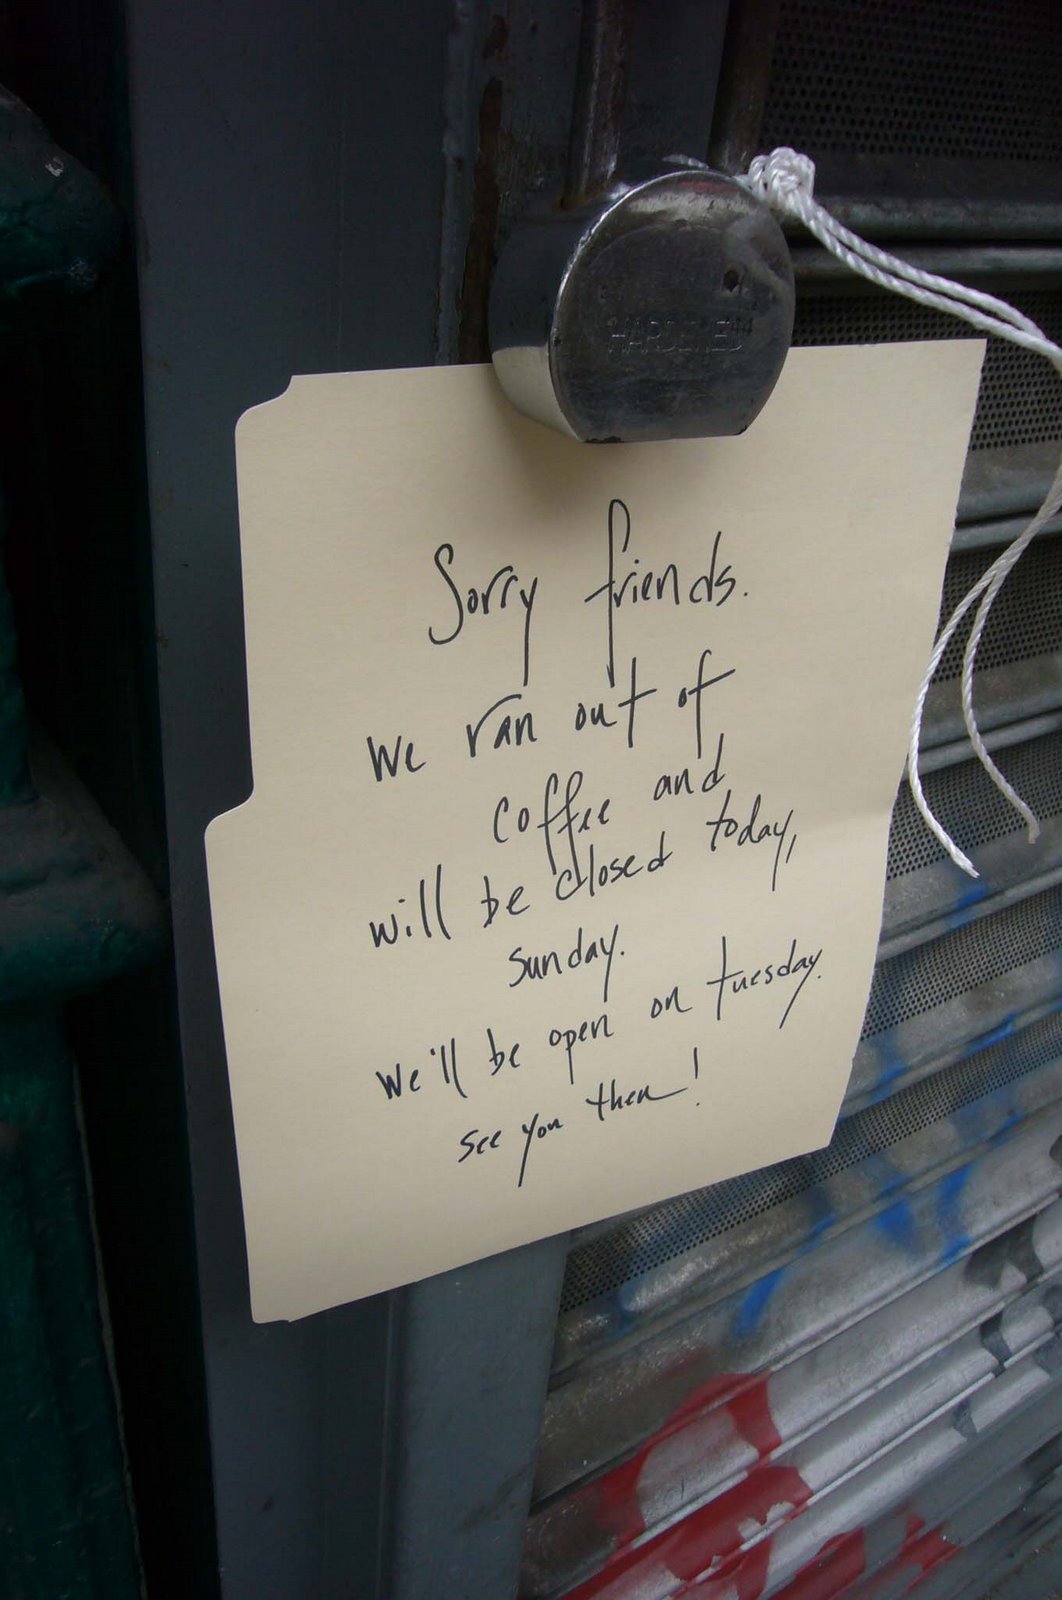 HARDENED
Sorry friends.
We ran out of
coffee and
will be closed today,
sunday.
We'll be open on tuesday.
see you then!